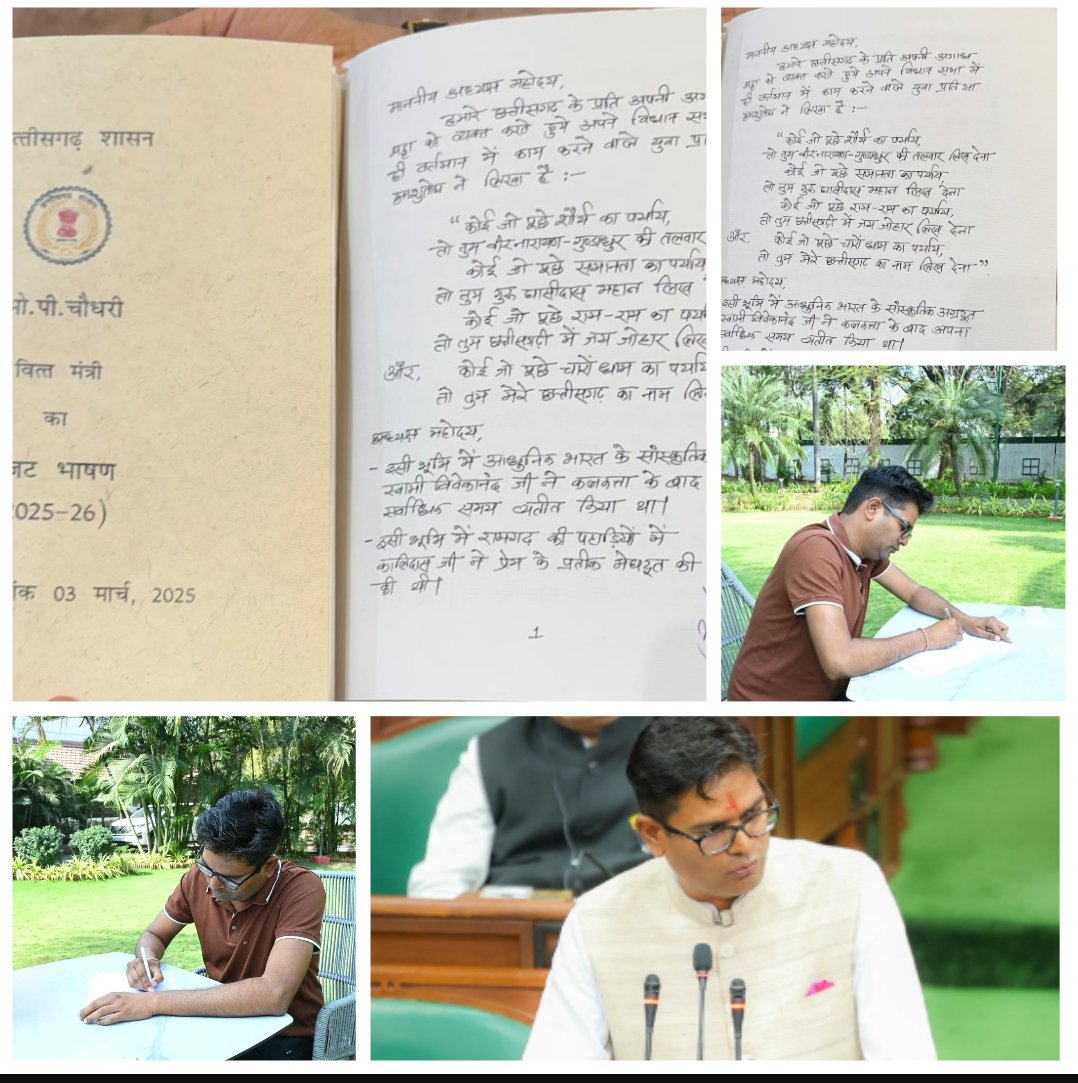 त्तीसगढ़ शासन
ओ.पी.चौधरी
वित्त मंत्री
का
जट भाषण
025-26)
03 मार्च, 2025
माननीय अध्यक्ष महोदय,
हमारे छत्तीसगढ़ के प्रति अपनी
को व्यक्त करते हुये अपने विधान
ही वर्तमान में काम करने वाले युवा
आशुतोष ने लिखा है :-
“कोई जो पूछे शौर्य का पर्याय,
तो तुम वीरनारायण-गुण्डाधुर की तलवार
कोई जो पूछे समानता का पर्याय
तो तुम गुरु घासीदास महान लिख
कोई जो पूछे राम-राम का
तो तुम छत्तीसगढ़ी में जय जोहार
और, कोई जो पूछे चारों धाम का
तो तुम मेरे छत्तीसगढ़ का नाम
अध्यक्ष महोदय,
- इसी भूमि में आधुनिक भारत के सांस्कृतिक
स्वामी विवेकानंद जी ने कलकत्ता के बाद
सर्वाधिक समय व्यतीत किया था।
- इसी भूमि में रामगढ़ की पहाड़ियों में
कालिदास जी ने प्रेम के प्रतीक मेघदूत की
की थी।
1
माननीय अध्यक्ष महोदय,
हमारे छत्तीसगढ़ के प्रति अपनी अगाध
को व्यक्त करते हुये अपने विधान सभा में
ही वर्तमान में काम करने वाले युवा प्रतिभा
आशुतोष ने लिखा है :-
“कोई जो पूछे शौर्य का पर्याय,
तो तुम वीरनारायण-गुण्डाधुर की तलवार लिख देना
कोई जो पूछे समानता का पर्याय
तो तुम गुरु घासीदास महान लिख देना
कोई जो पूछे राम-राम का पर्याय,
तो तुम छत्तीसगढ़ी में जय जोहार लिख देना
और, कोई जो पूछे चारों धाम का पर्याय,
तो तुम मेरे छत्तीसगढ़ का नाम लिख देना”
महोदय,
इसी भूमि में आधुनिक भारत के सांस्कृतिक अग्रदूत
स्वामी विवेकानंद जी ने कलकत्ता के बाद अपना
सर्वाधिक समय व्यतीत किया था।